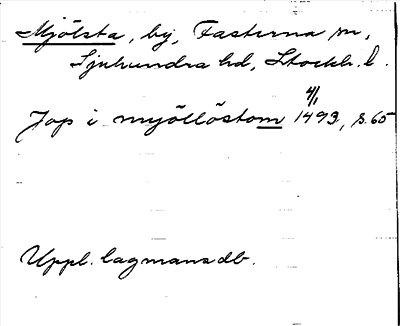 Mjölsta, by, Fasterna sn,
Sjuhundra hd, Stockh. l.
Jop i myöllöstom 4/1 1493, s. 65
Uppl. lagmansdb.